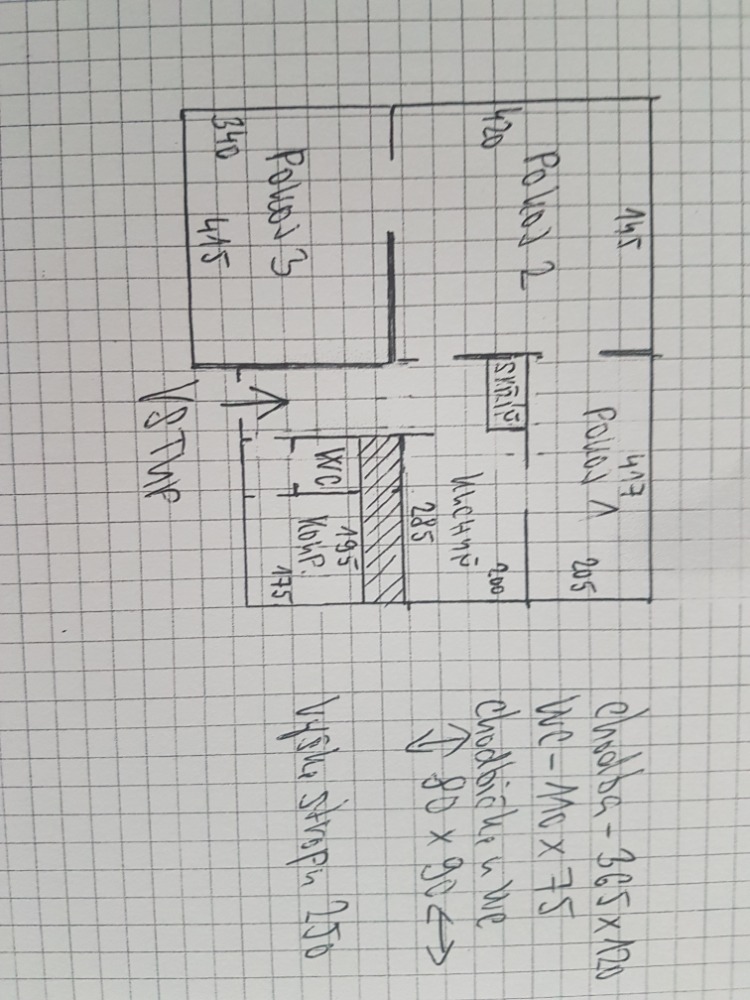 Pokoj 1
417
205
Pokoj 2
145
420
Pokoj 3
340
415
SKŘÍŇ
Kuchyň
200
285
WC
Koup.
195
175
VSTUP
chodba - 365 x 120
WC - 110 x 75
chodbička u WC
↕ 80 x 90 ↔
Výška stropu 250